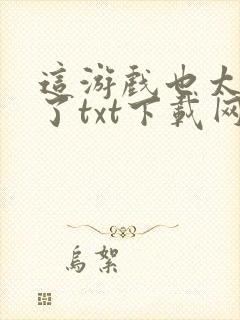 這游戲也太
了txt下載网
烏絮